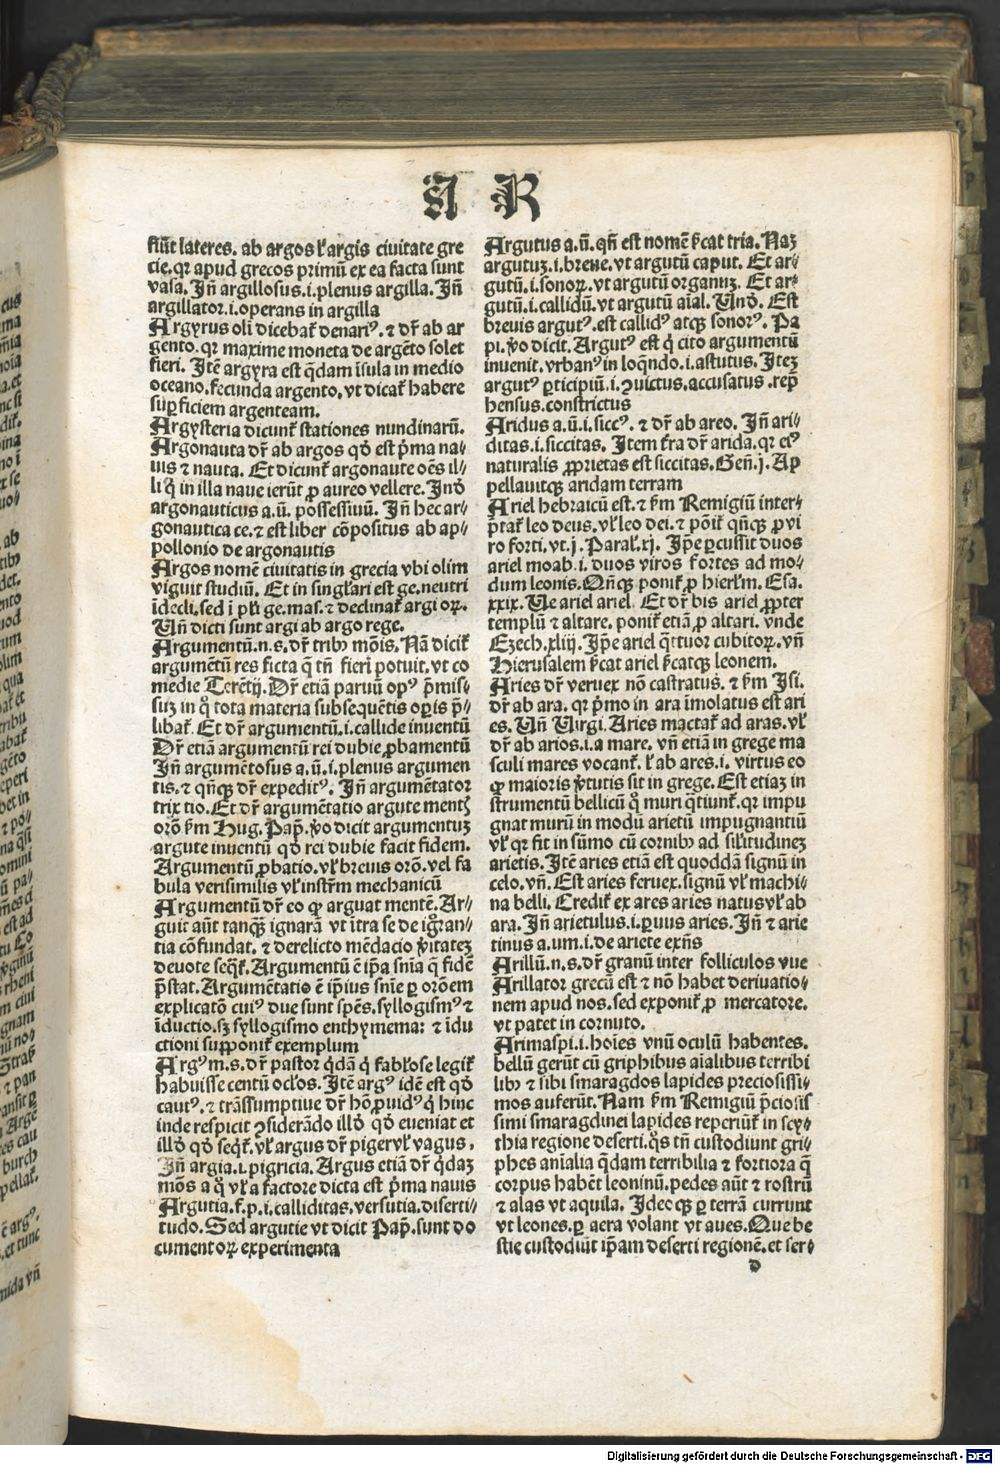 A R
fiūt lateres. ab argos ɫ argis ciuitate gre
cie. qꝛ apud grecos primū ex ea facta sunt
vasa. Jn̄ argillosus .i. plenus argilla. Jn̄
argillator .i. operans in argilla
Argyrus oli dicebat̄ denariꝰ. ⁊ dr̄ ab ar
gento. qꝛ maxime moneta de argēto solet
fieri. Jtē argyra est q̄dam īsula in medio
oceano. fecunda argento. vt dicat̄ habere
suꝑficiem argenteam.
Argysteria dicunt̄ stationes nundinarū.
Argonauta dr̄ ab argos qđ est p̄ma na⸗
uis ⁊ nauta. Et dicunt̄ argonaute oēs il⸗
li q̇ in illa naue ierūt ꝓ aureo vellere. Jnđ
argonauticus a.ū. possessiuū. Jn̄ hec ar⸗
gonautica ce. ⁊ est liber cōpositus ab ap⸗
pollonio de argonautis
Argos nomē ciuitatis in grecia vbi olim
viguit studiū. Et in singɫari est ge. neutri
īdecli. sed ī pɫi ge. mas. ⁊ declinat̄ argi oꝝ.
Un̄ dicti sunt argi ab argo rege.
Argumentū .n.s. dr̄ tribꝰ mōis. Nā dicit̄
argumētū res ficta q̄ tn̄ fieri potuit. vt co
medie Terētij. Dr̄ etiā paruū opꝰ p̄mis⸗
suꝫ in q̊ tota materia subsequētis oꝑis p̄⸗
libat̄. Et dr̄ argumentū .i. callide inuentū
Dr̄ etiā argumentū rei dubie ꝓbamentū
Jn̄ argumētosus a.ū. i. plenus argumen
tis. ⁊ qn̄qꝫ dr̄ expeditꝰ. Jn̄ argumētator
trix tio. Et dr̄ argumētatio argute mentꝭ
orō ẜm Hug. Pap̄. ꝟo dicit argumentuꝫ
argute inuentū qđ rei dubie facit fidem.
Argumentū ꝓbatio. vɫ breuis orō. vel fa
bula verisimilis vɫ instr̄m mechanicū
Argumentū dr̄ eo ꝙ arguat mentē. Ar⸗
guit aūt tanqꝫ ignarā vt ītra se de igr̊an⸗
tia cōfundat. ⁊ derelicto mēdacio ꝟitateꝫ
deuote seqt̄. Argumentū ē ip̄a sn̄ia q̄ fidē
p̄stat. Argumētatio ē ip̄ius sn̄ie ꝑ orōem
explicatō cuiꝰ due sunt sp̄es. syllogismꝰ ⁊
īductio. sꝫ syllogismo enthymema: ⁊ īdu
ctioni suꝓponit̄ exemplum
Argꝰ m.s. dr̄ pastor q̇dā q̇ fabɫose legit̄
habuisse centū ocɫos. Jtē argꝰ idē est qđ
cautꝰ. ⁊ trāssumptiue dr̄ hō ꝓuidꝰ q̇ hinc
inde respicit ꝯsiderādo illđ qđ eueniat et
illđ qđ seqt̄. vɫ argus dr̄ piger vɫ vagus.
Jn̄ argia .i. pigricia. Argus etiā dr̄ q̇daꝫ
mōs a q̊ vɫ a factore dicta est p̄ma nauis
Argutia .f.p. i. calliditas. versutia. diserti⸗
tudo. Sed argutie vt dicit Pap̄. sunt do
cumentoꝝ experimenta
Argutus a.ū. qn̄ est nomē ẜcat tria. Naꝫ
argutuꝫ .i. breue. vt argutū caput. Et ar⸗
gutū .i. sonoꝝ. vt argutū organuꝫ. Et ar⸗
gutū .i. callidū. vt argutū aīal. Unđ. Est
breuis argutꝰ. est callidꝰ atqꝫ sonorꝰ. Pa
pi. ꝟo dicit. Argutꝰ est q̇ cito argumentū
inuenit. vrbanꝰ in loqn̄do .i. astutus. Jteꝫ
argutꝰ ꝑticipiū .i. ꝯuictus. accusatus. rep̄
hensus. constrictus
Aridus a.ū. i. siccꝰ. ⁊ dr̄ ab areo. Jn̄ ari⸗
ditas .i. siccitas. Jtem t̄ra dr̄ arida. qꝛ eiꝰ
naturalis ꝓprietas est siccitas. Gen̄. j. Ap
pellauitqꝫ aridam terram
Ariel hebraicū est. ⁊ ẜm Remigiū inter⸗
p̄tat̄ leo deus. vɫ leo dei. ⁊ pōit̄ qn̄qꝫ ꝓ vi
ro forti. vt .j. Paraɫ. xj. Jp̄e ꝑcussit duos
ariel moab .i. duos viros fortes ad mo⸗
dum leonis. Qn̄qꝫ ponit̄ ꝓ hierɫm. Esa.
xxix. Ue ariel ariel. Et dr̄ bis ariel ꝓpter
templū ⁊ altare. ponit̄ etiā ꝓ altari. vnde
Ezech. xliij. Jp̄e ariel q̄ttuor cubitoꝝ. vn̄
Hierusalem ẜcat ariel ẜcatqꝫ leonem.
Aries dr̄ veruex nō castratus. ⁊ ẜm Jsi.
dr̄ ab ara. qꝛ p̄mo in ara imolatus est ari
es. Un̄ Uirgi. Aries mactat̄ ad aras. vɫ
dr̄ ab arios .i. a mare. vn̄ etiā in grege ma
sculi mares vocant̄. ɫ ab ares .i. virtus eo
ꝙ maioris ꝟtutis sit in grege. Est etiaꝫ in
strumentū bellicū q̊ muri q̄tiunt̄. qꝛ impu
gnat murū in modū arietū impugnantiū
vɫ qꝛ fit in sūmo cū cornibꝰ ad siɫitudineꝫ
arietis. Jtē aries etiā est quoddā signū in
celo. vn̄. Est aries feruex. signū vɫ machi⸗
na belli. Credit̄ ex ares aries natus vɫ ab
ara. Jn̄ arietulus .i. ꝑuus aries. Jn̄ ⁊ arie
tinus a.um. i. de ariete exn̄s
Arillū .n.s. dr̄ granū inter folliculos vue
Arillator grecū est ⁊ nō habet deriuatio⸗
nem apud nos. sed exponit̄ ꝓ mercatore.
vt patet in cornuto.
Arimaspi .i. hoīes vnū oculū habentes.
bellū gerūt cū griphibus aīalibus terribi
libꝰ ⁊ sibi smaragdos lapides preciosissi⸗
mos auferūt. Nam ẜm Remigiū p̄ciosis
simi smaragdinei lapides reperiūt̄ in scy⸗
thia regione deserti. q̊s tn̄ custodiunt gri⸗
phes animalia q̄dam terribilia ⁊ fortiora q̄
corpus habēt leoninū. pedes aūt ⁊ rostrū
⁊ alas vt aquila. Jdeoqꝫ ꝑ terrā currunt
vt leones. ꝑ aera volant vt aues. Que be
stie custodiūt ip̄am deserti regionē. et ser⸗
d
Digitalisierung gefördert durch die Deutsche Forschungsgemeinschaft - DFG